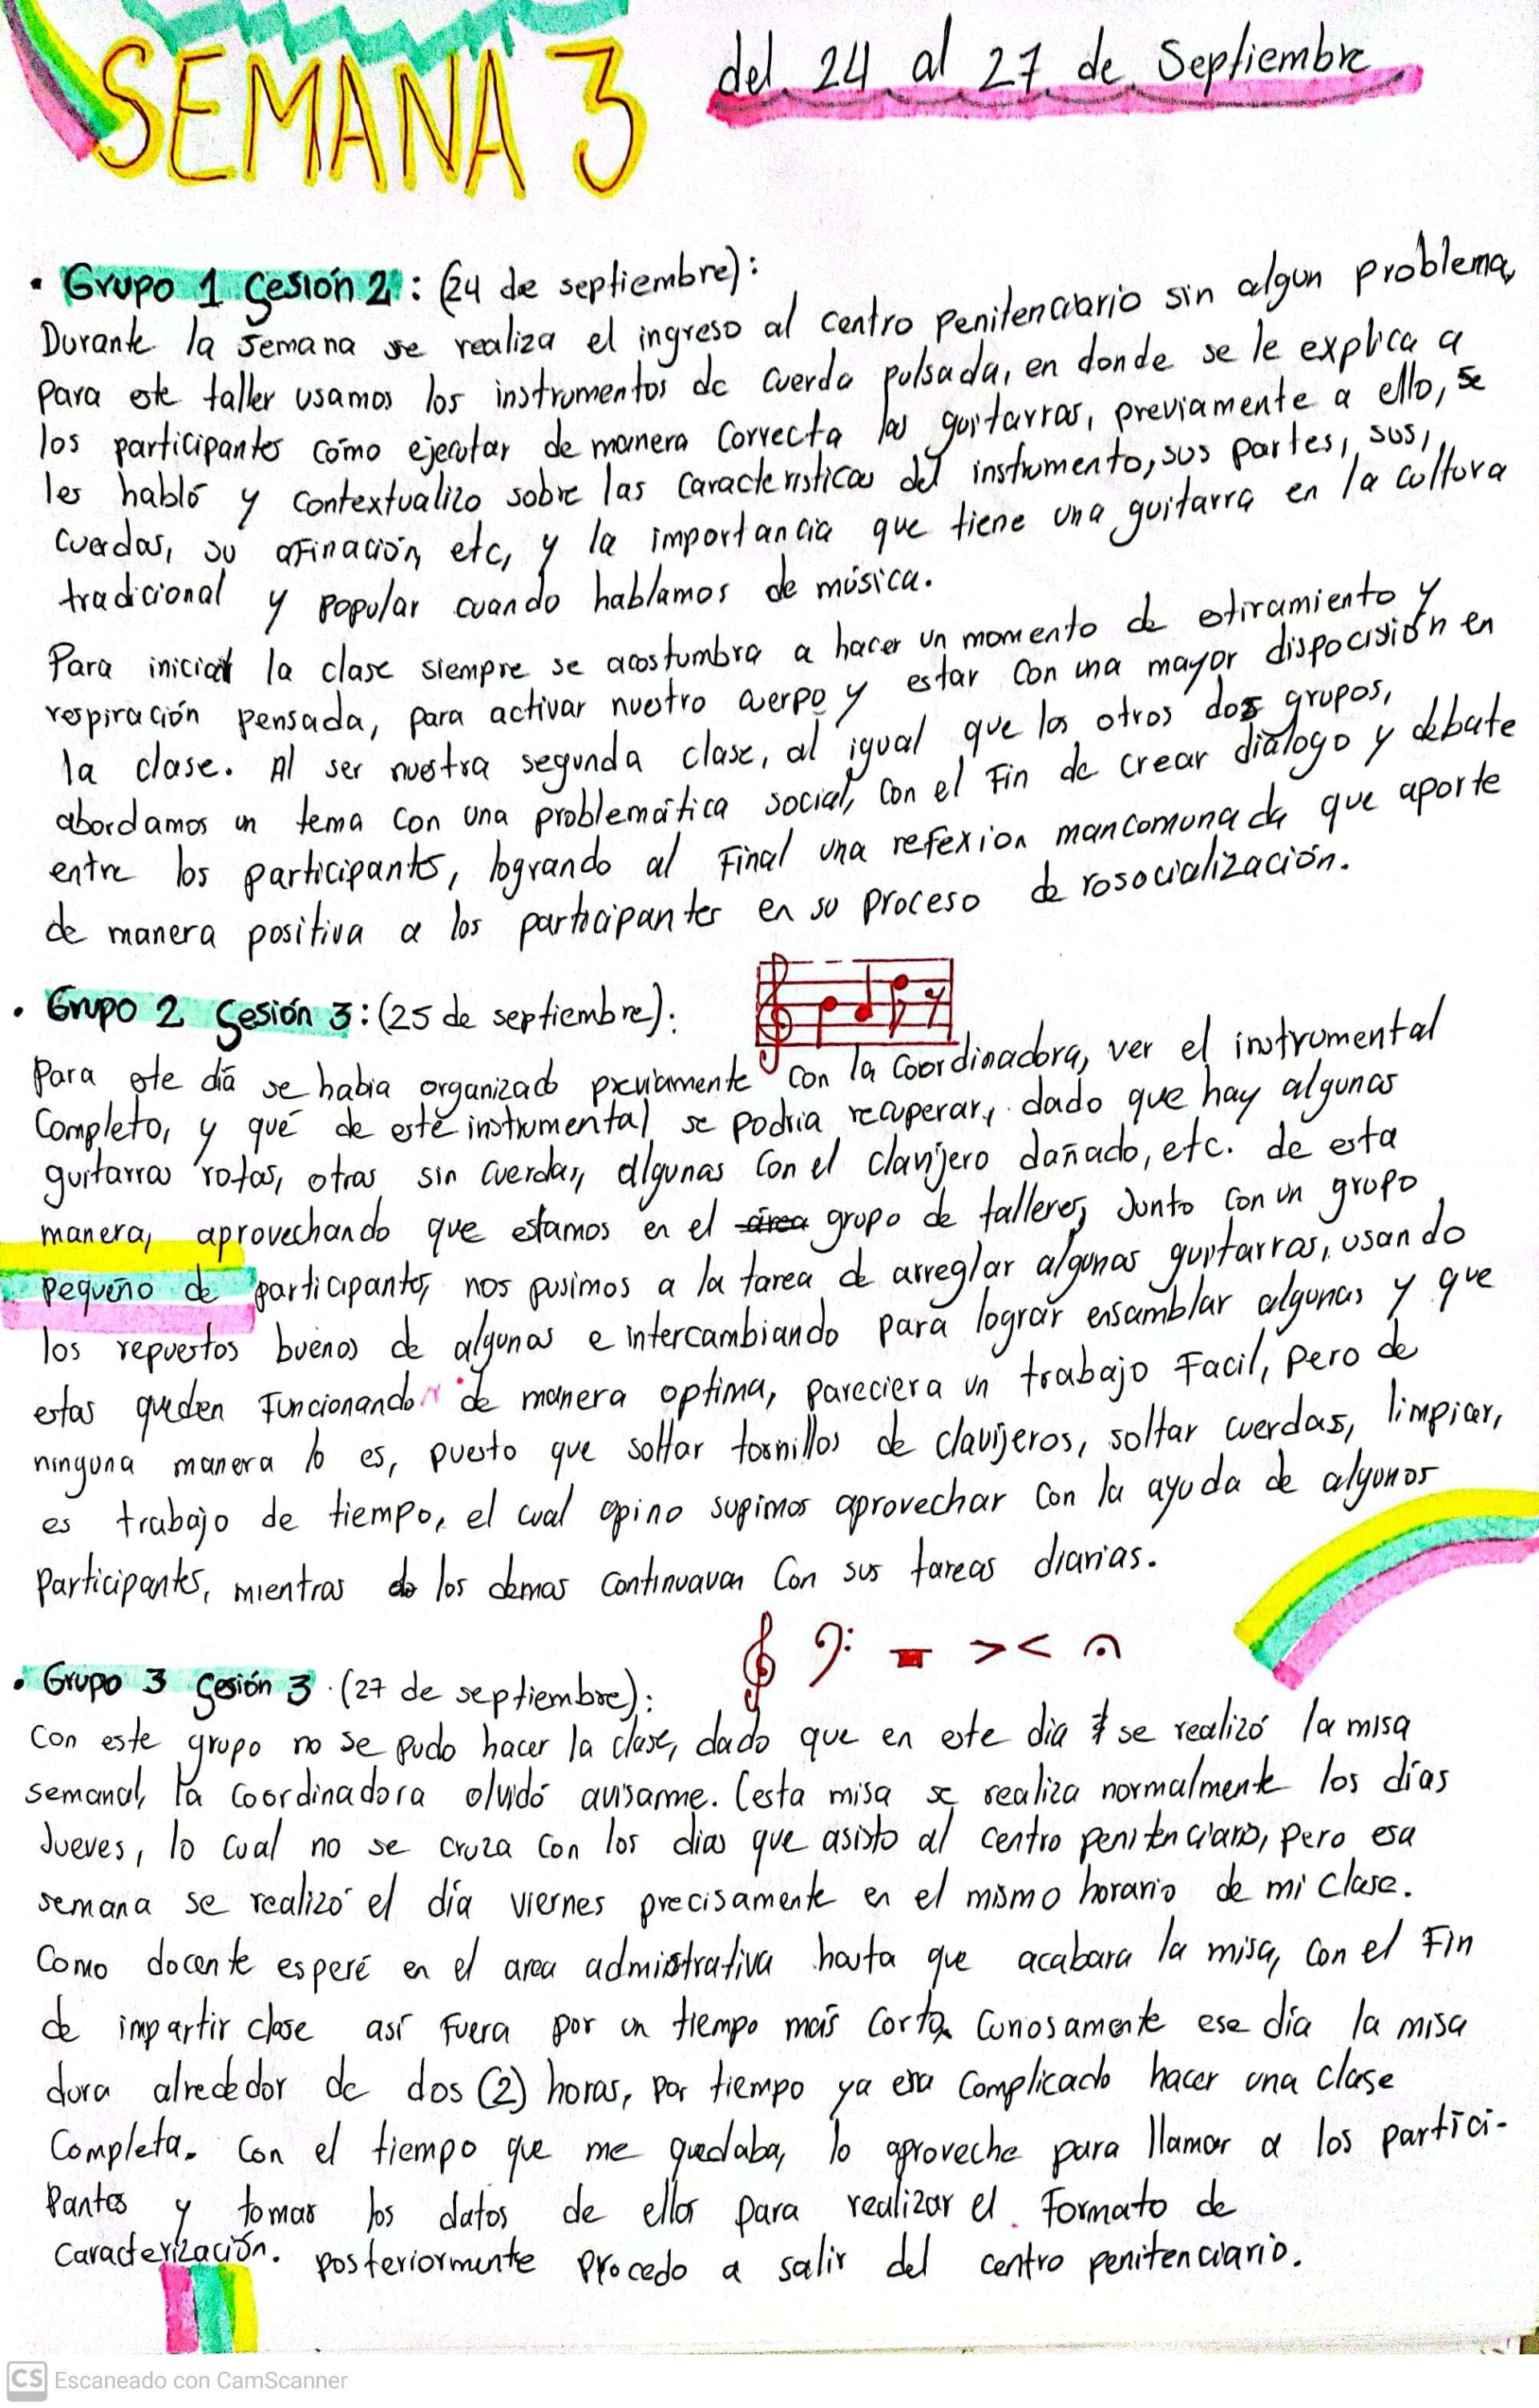 SEMANA 3 del 24 al 27 de Septiembre
• Grupo 1 Sesión 2: (24 de septiembre):
Durante la semana se realiza el ingreso al centro penitenciario sin algun problema,
para este taller usamos los instrumentos de cuerda pulsada, en donde se le explica a
los participantes cómo ejecutar de manera correcta las guitarras, previamente a ello, se
les habló y contextualizo sobre las caracteristicas del instrumento, sus partes, sus,
cuerdas, su afinación, etc, y la importancia que tiene una guitarra en la cultura
tradicional y popular cuando hablamos de música.
Para iniciar la clase siempre se acostumbra a hacer un momento de estiramiento y
respiración pensada, para activar nuestro cuerpo y estar con una mayor dispocisión en
la clase. Al ser nuestra segunda clase, al igual que los otros dos grupos,
abordamos un tema con una problemática social, con el fin de crear dialogo y debate
entre los participantes, logrando al final una refexion mancomunada que aporte
de manera positiva a los participantes en su proceso de rosocialización.
• Grupo 2 Sesión 3: (25 de septiembre):
Para este día se habia organizado previamente con la coordinadora, ver el instrumental
completo, y qué de este instrumental se podria recuperar, dado que hay algunas
guitarras rotas, otras sin cuerdas, algunas con el clavijero dañado, etc. de esta
manera, aprovechando que estamos en el area grupo de talleres, Junto con un grupo
pequeño de participantes, nos pusimos a la tarea de arreglar algunas guitarras, usando
los repuestos buenos de algunas e intercambiando para lograr ensamblar algunas y que
estas queden funcionando de manera optima, pareciera un trabajo facil, pero de
ninguna manera lo es, puesto que soltar tornillos de clavijeros, soltar cuerdas, limpiar,
es trabajo de tiempo, el cual opino supimos aprovechar con la ayuda de algunos
participantes, mientras los demas continuavan con sus tareas diarias.
• Grupo 3 Sesión 3 (27 de septiembre):
Con este grupo no se pudo hacer la clase, dado que en este dia se realizó la misa
semanal, la coordinadora olvidó avisarme. (esta misa se realiza normalmente los días
Jueves, lo cual no se cruza con los dias que asisto al centro penitenciario, pero esa
semana se realizó el día viernes precisamente en el mismo horario de mi clase.
Como docente esperé en el area admistrativa hasta que acabara la misa, con el fin
de impartir clase así fuera por un tiempo más corto. Curiosamente ese día la misa
dura alrededor de dos (2) horas, por tiempo ya era complicado hacer una clase
completa. Con el tiempo que me quedaba, lo aproveche para llamar a los partici-
pantes y tomar los datos de ellos para realizar el formato de
caracterización. posteriormente procedo a salir del centro penitenciario.
CS Escaneado con CamScanner